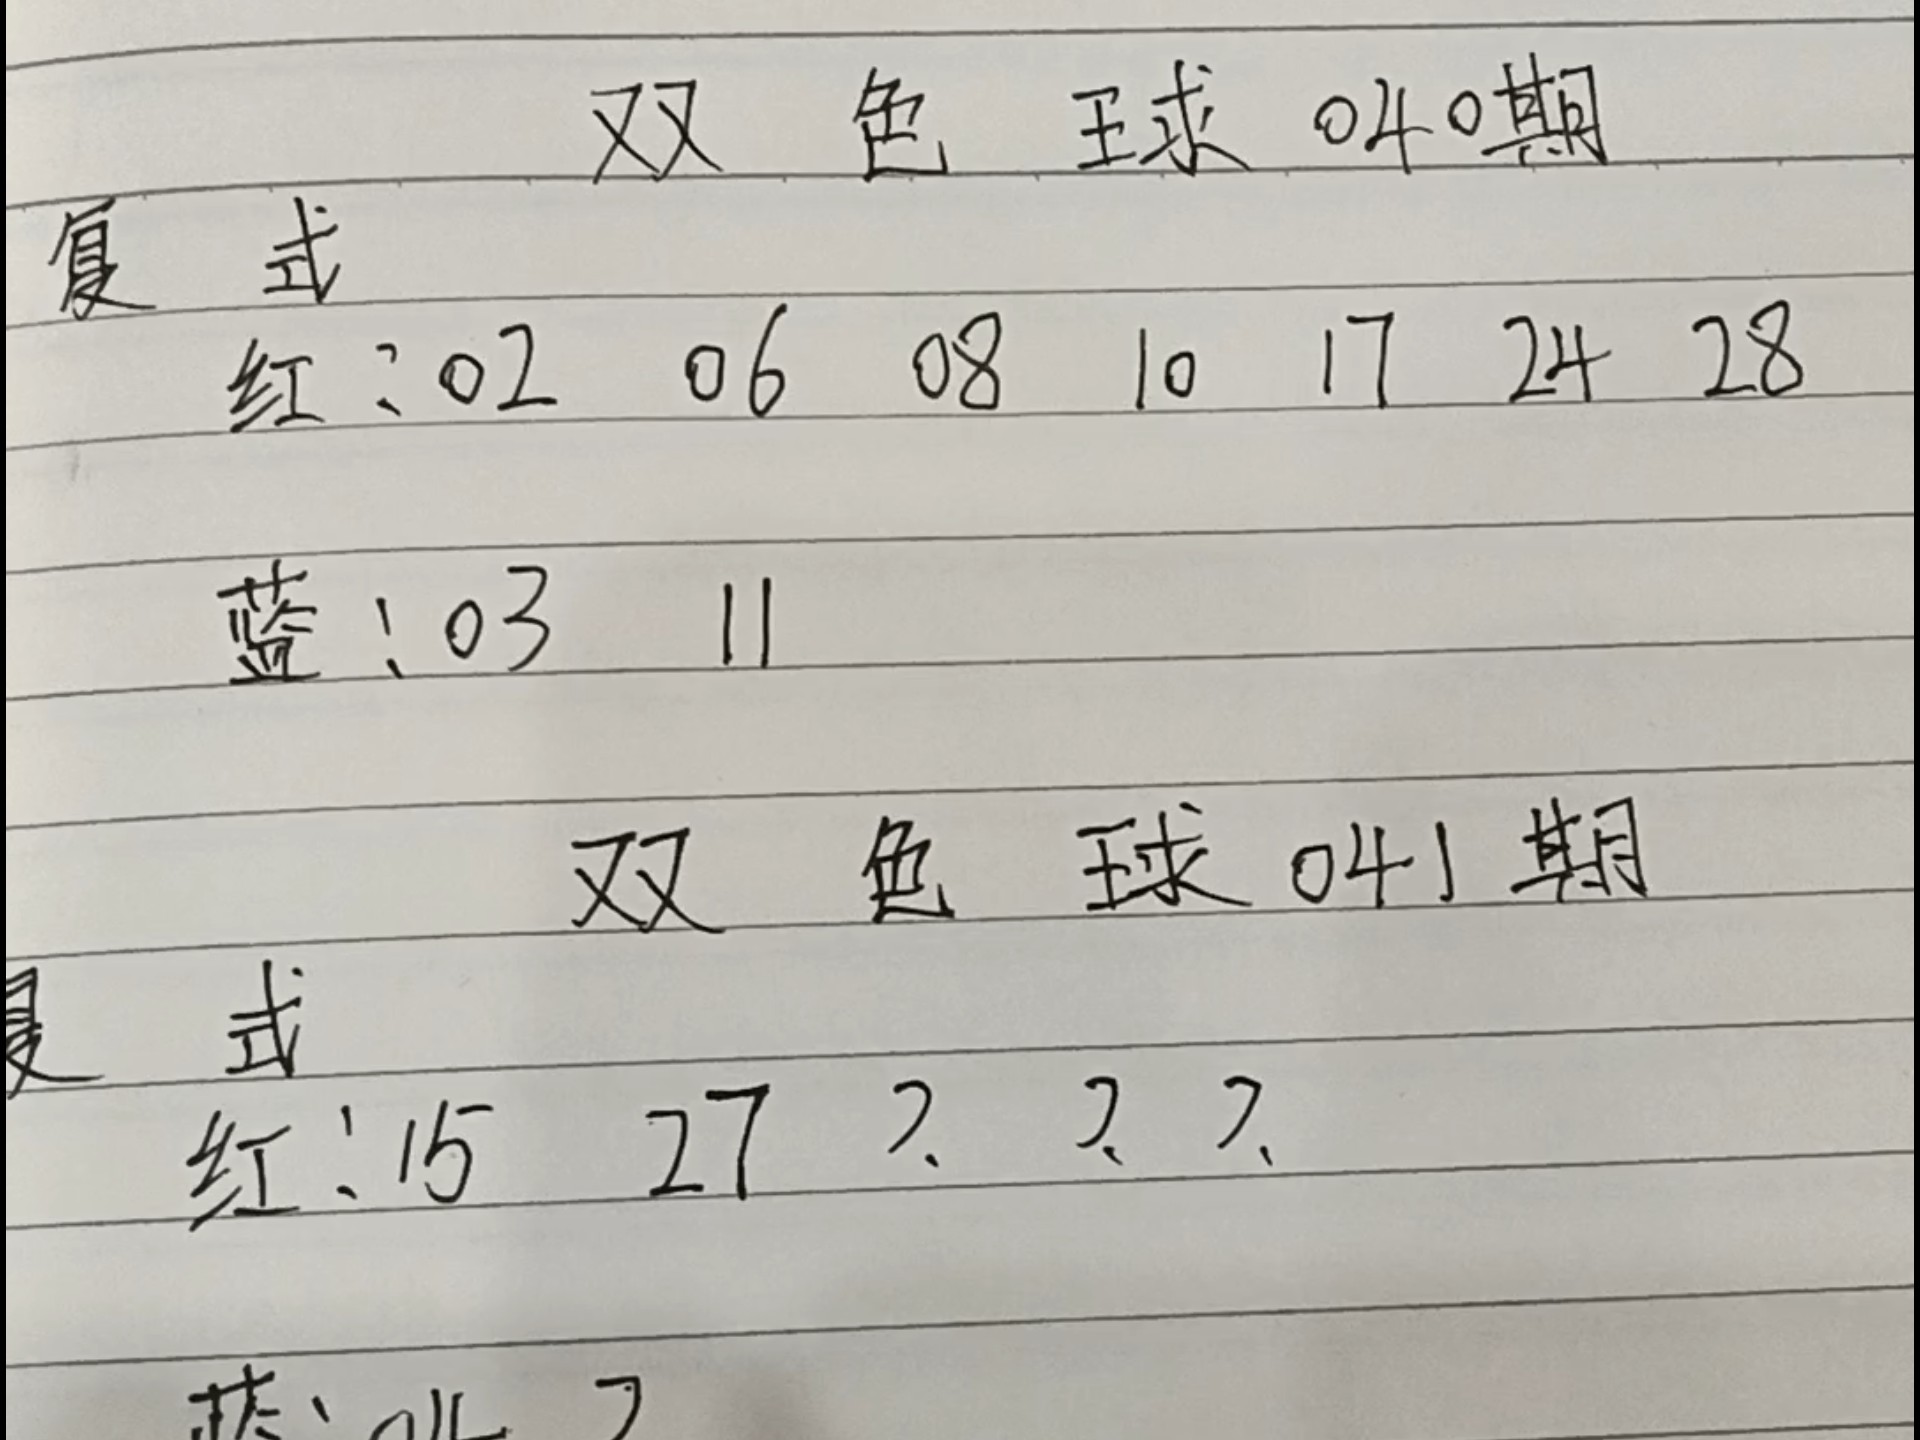 双 色 球 040期
复 式
红：02 06 08 10 17 24 28
蓝：03 11
双 色 球 041期
复 式
红：15 27 ? ? ?
蓝：04 ?